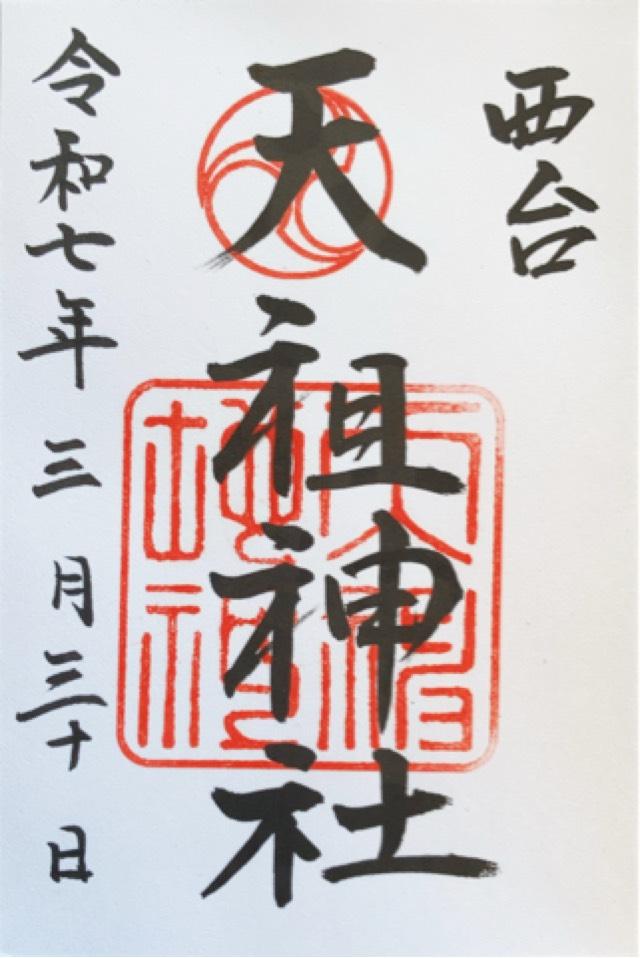 西台
天祖神社
令和七年三月三十日
天祖神社